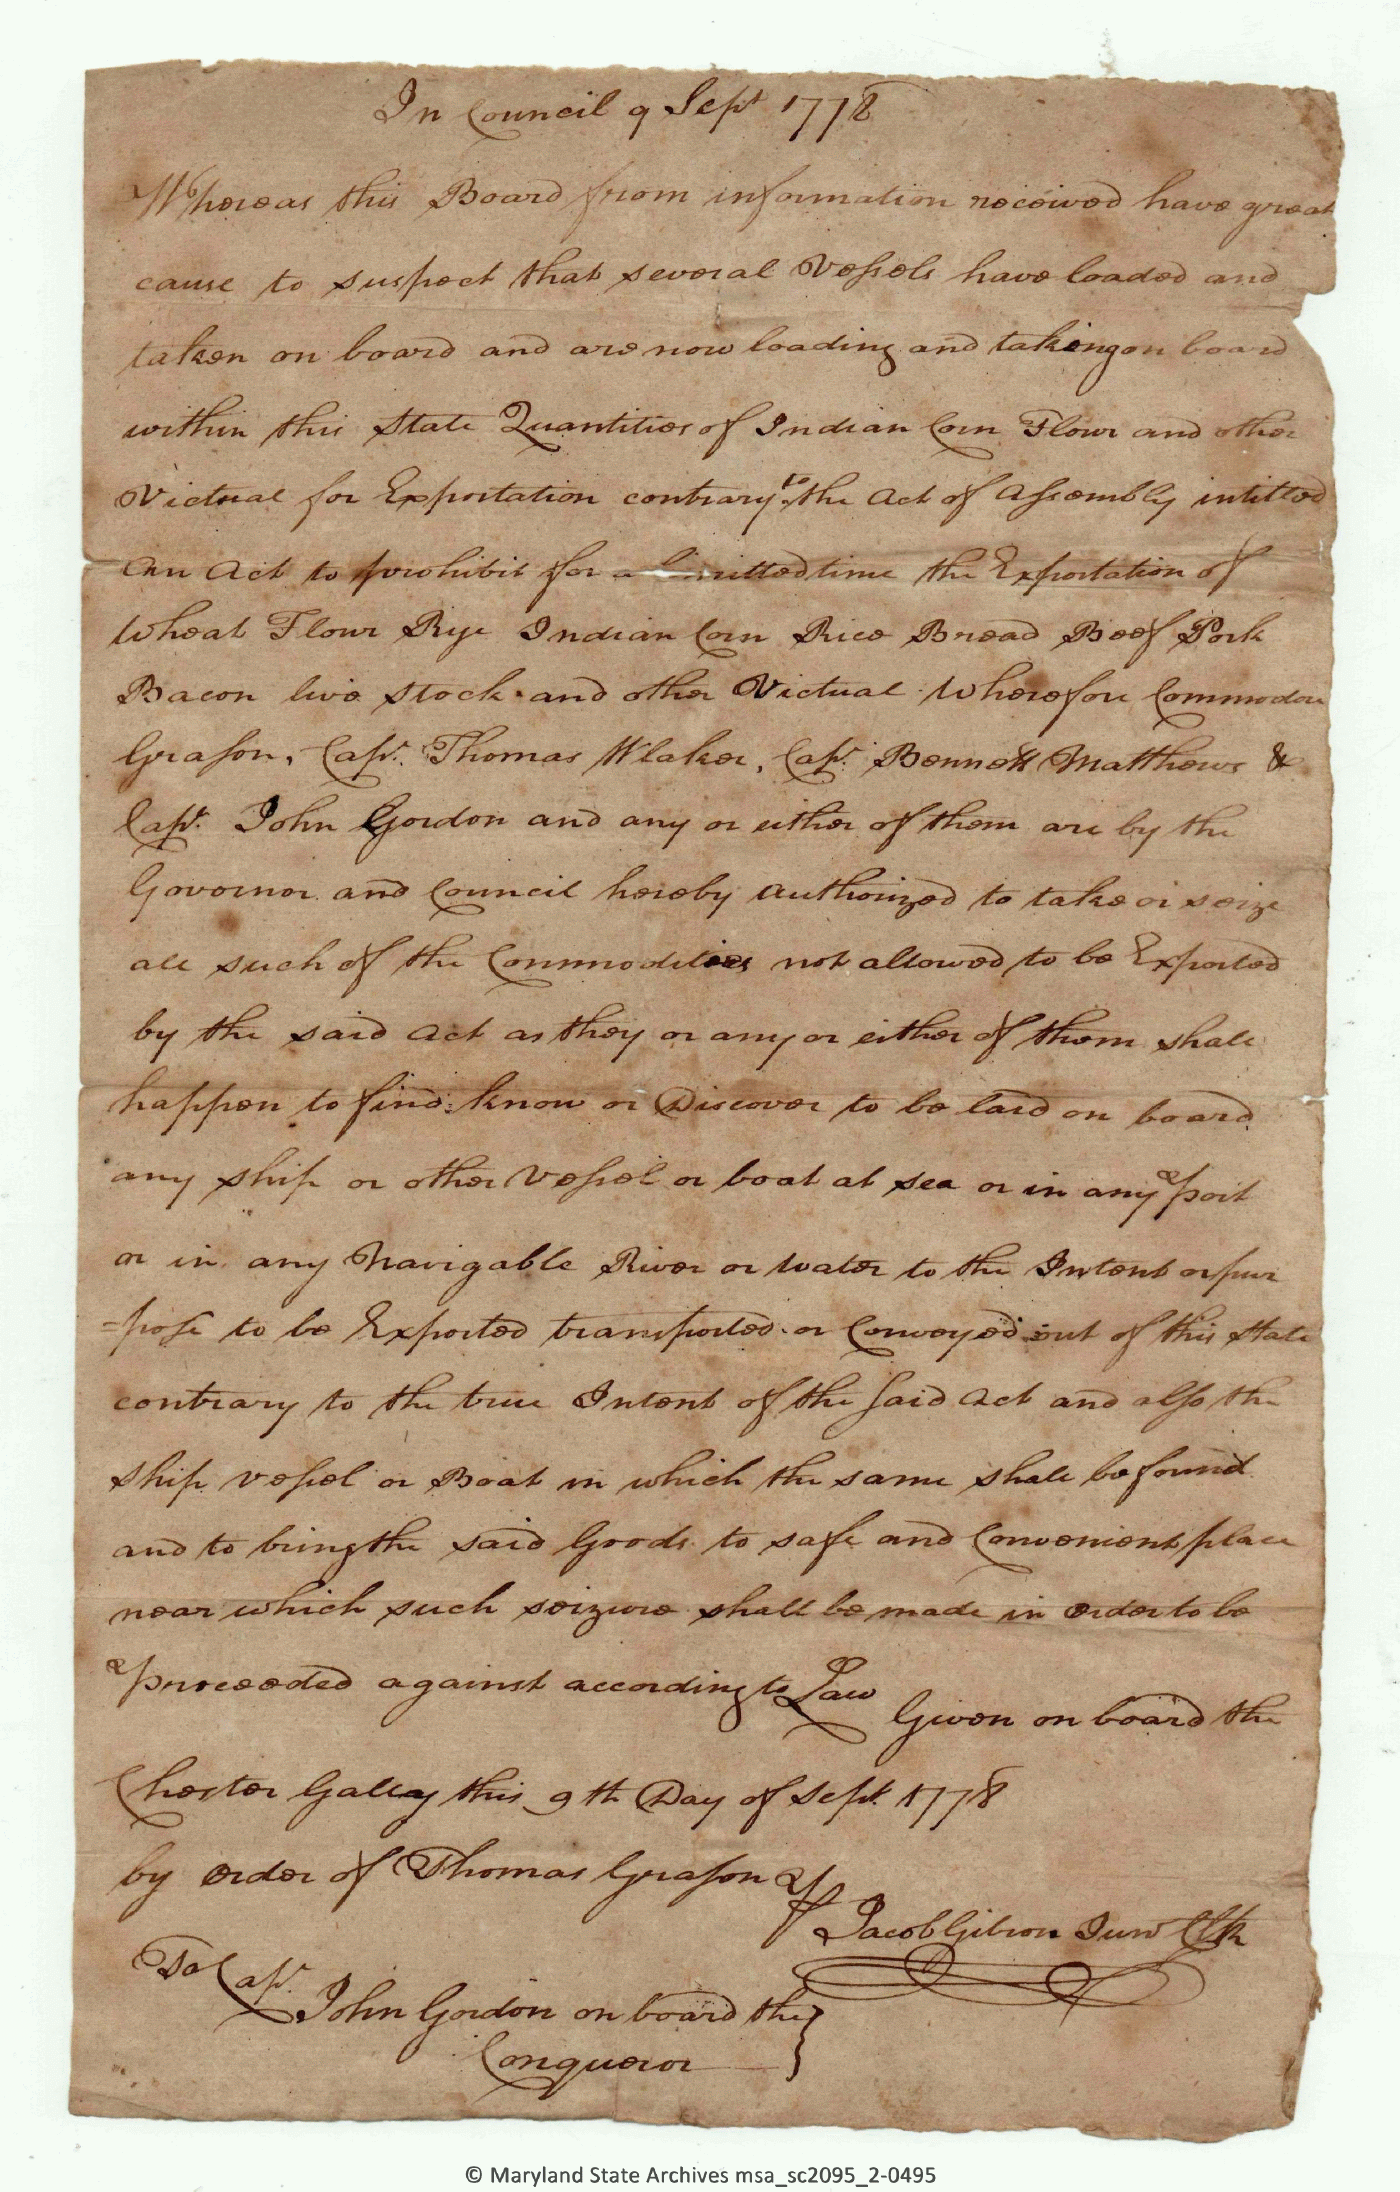 In Council 9 Sept 1778
Whereas this Board from information received have great
cause to suspect that several Vessels have loaded and
taken on board and are now loading and taking on board
within this State Quantities of Indian Corn Flour and other
Victual for Exportation contrary to the Act of Assembly intitled
An Act to prohibit for a limitted time the Exportation of
Wheat Flour Rye Indian Corn Rice Bread Beef Pork
Bacon live Stock and other Victual Wherefore Commodore
Grason, Capt. Thomas Wlaker, Capt. Bennett Matthews &
Capt. John Gordon and any or either of them are by the
Governor and Council hereby authorized to take or seize
all such of the Commodities not allowed to be Exported
by the said Act as they or any or either of them shall
happen to find know or Discover to be laid on board
any ship or other Vessel or boat at sea or in any port
or in any Navigable River or Water to the Intent or pur
=pose to be Exported transported or Conveyed out of this State
contrary to the true Intent of the said Act and also the
Ship Vessel or Boat in which the same shall be found
and to bring the said Goods to safe and Convenient place
near which such seizure shall be made in order to be
proceeded against according to Law Given on board the
Chester Galley this 9th Day of Sept. 1778
by order of Thomas Grason
Jacob Gibson Junr Clk
To Capt. John Gordon on board the
Conqueror
© Maryland State Archives msa_sc2095_2-0495